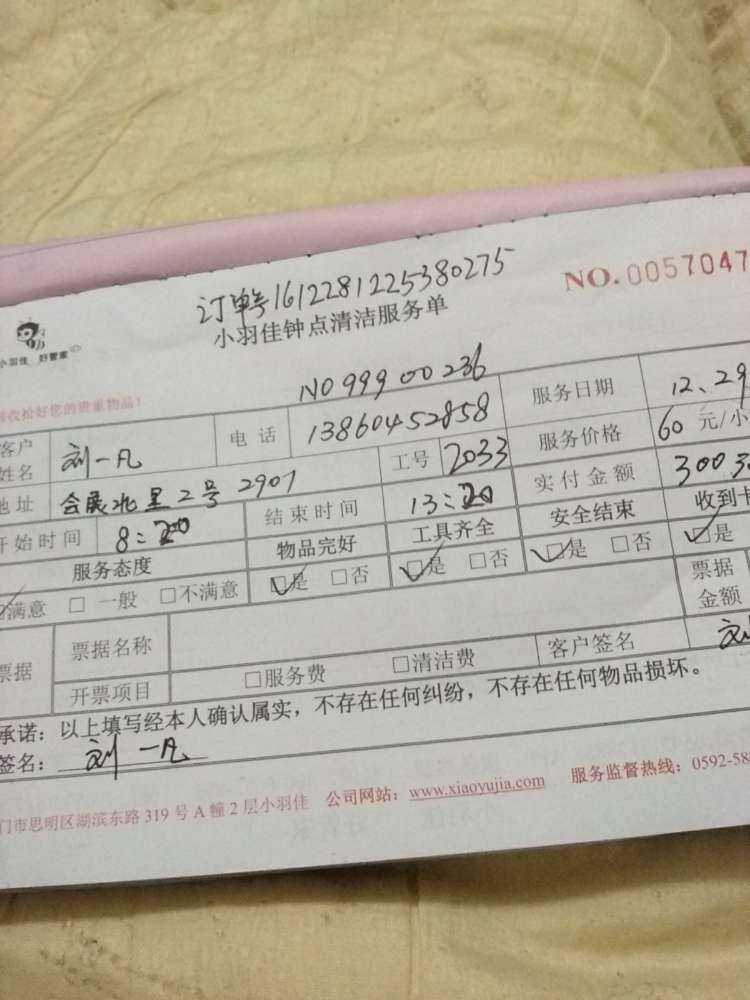 订单号1612281225380275
NO.0057047
小羽佳钟点清洁服务单
小羽佳 好管家
NO 999 00236
收拾好您的贵重物品!
客户姓名 刘一凡 电话 13860452858 服务日期 12.29
地址 会展北里2号2901 工号 2033 服务价格 60 元/小
开始时间 8:20 结束时间 13:20 实付金额 300
服务态度 物品完好 工具齐全 安全结束 收到卡
☑满意 □一般 □不满意 ☑是 □否 ☑是 □否 ☑是 □否 ☑是
票据 票据名称 票据金额
开票项目 □服务费 □清洁费 客户签名 刘
承诺:以上填写经本人确认属实,不存在任何纠纷,不存在任何物品损坏。
签名:刘一凡
门市思明区湖滨东路319号A幢2层小羽佳 公司网站:www.xiaoyujia.com 服务监督热线:0592-58